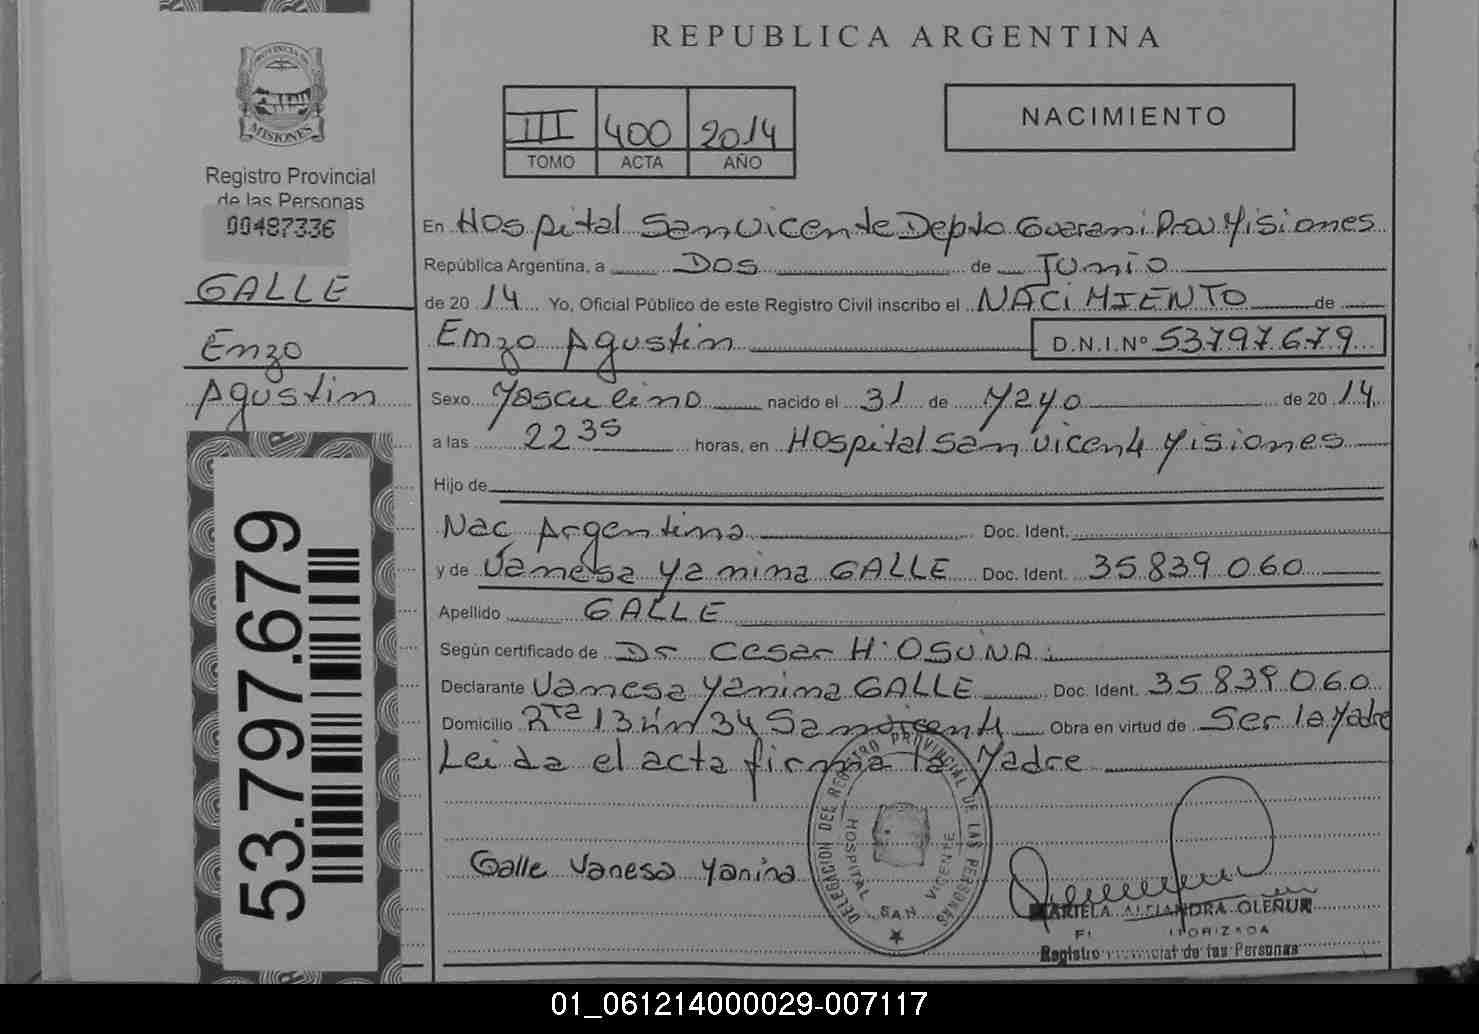 REPUBLICA ARGENTINA
PROVINCIA DE
MISIONES
Registro Provincial
de las Personas
00487336
GALLE
Enzo
Agustin
53.797.679
III 400 2014
TOMO ACTA AÑO
NACIMIENTO
En Hospital San Vicente Depto Guarani Prov Misiones
República Argentina, a Dos de Junio
de 20 14 Yo, Oficial Público de este Registro Civil inscribo el NACIMIENTO de
Enzo Agustin D.N.I.Nº 53797679
Sexo Masculino nacido el 31 de Mayo de 20 14
a las 22 35 horas, en Hospital San Vicente Misiones
Hijo de
Nac Argentina Doc. Ident.
y de Vanesa Yanina GALLE Doc. Ident. 35.839.060
Apellido GALLE
Según certificado de Dr Cesar H. OSUNA
Declarante Vanesa Yanina GALLE Doc. Ident. 35.839.060
Domicilio Rta 13 km 34 San Vicente Obra en virtud de Ser la Madre
Leida el acta firma la Madre
Galle Vanesa Yanina
DELEGACION DEL REGISTRO PROVINCIAL DE LAS PERSONAS
HOSPITAL SAN VICENTE
MARIELA ALEJANDRA OLEÑUK
Registro Provincial de las Personas
01_061214000029-007117